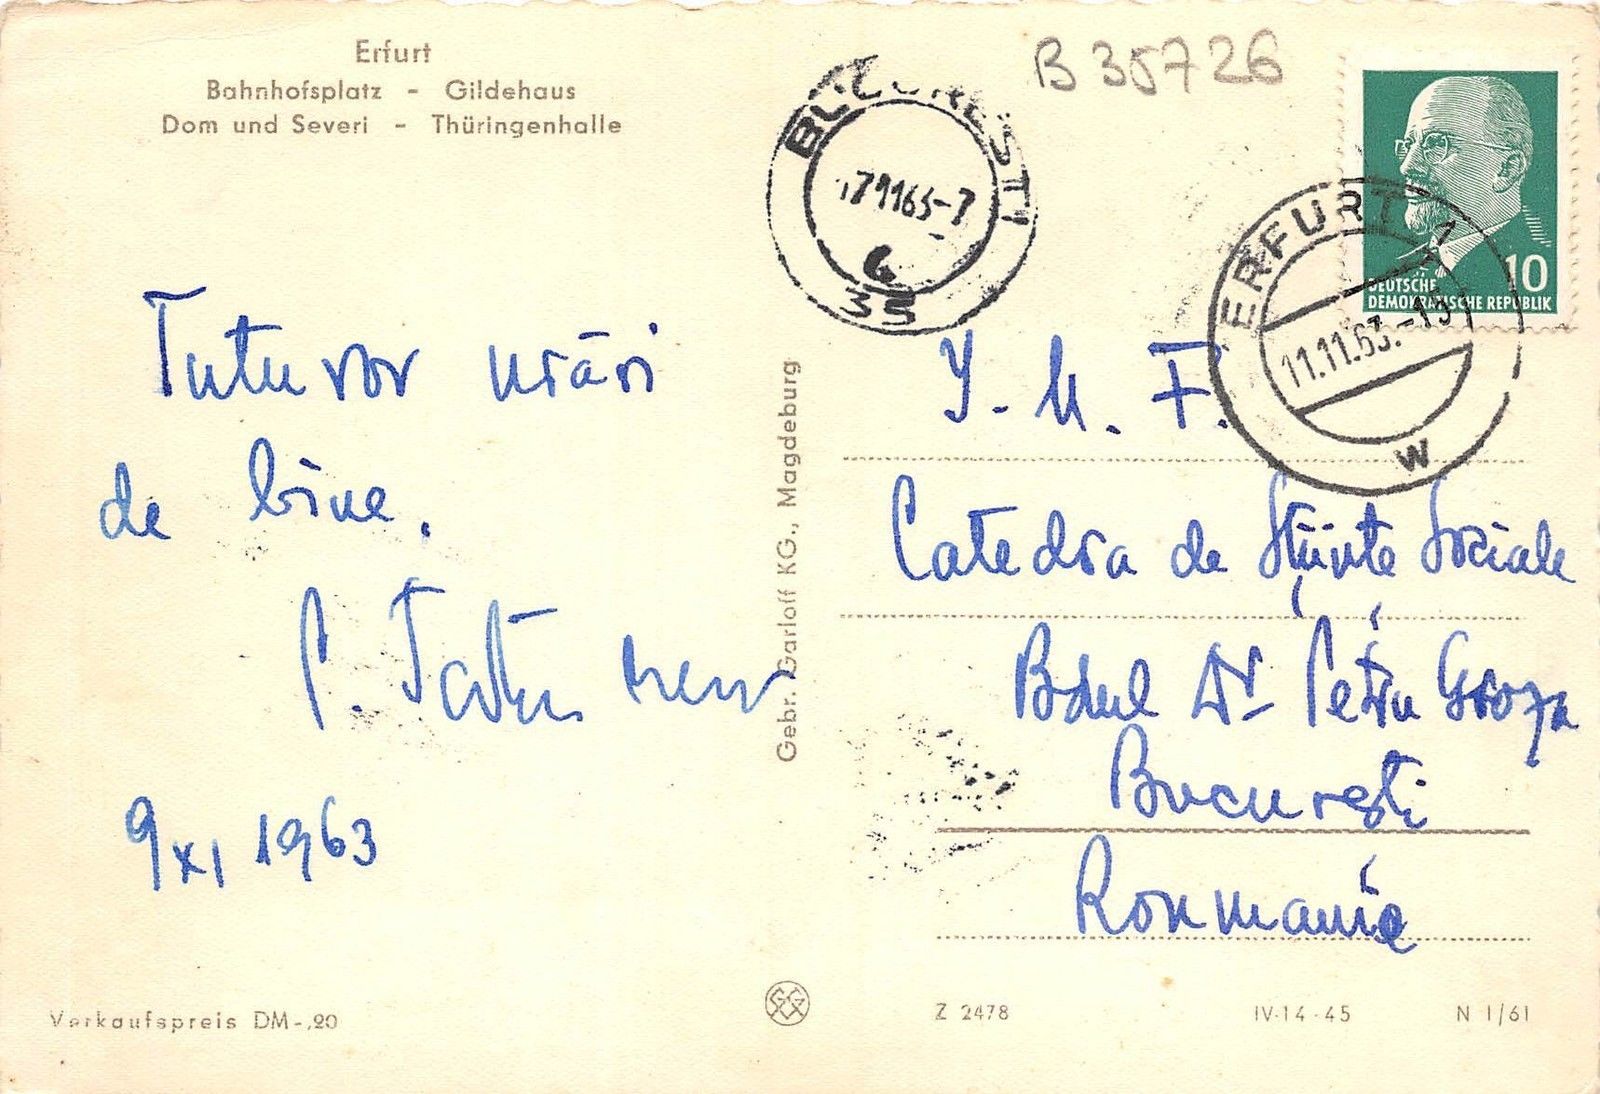 Erfurt
Bahnhofsplatz - Gildehaus
Dom und Severi - Thüringenhalle
B 35726
BUCUREȘTI
35
10
DEUTSCHE
DEMOKRATISCHE REPUBLIK
ERFURT 1
11.11.63.-13
W
Tuturor urări
de bine.
9 XI 1963
Gebr. Garloff KG., Magdeburg
I. M. F.
Catedra de Științe Sociale
Bdul Dr Petru Groza
București
Roumanie
Verkaufspreis DM -,20
Z 2478
IV-14-45
N 1/61